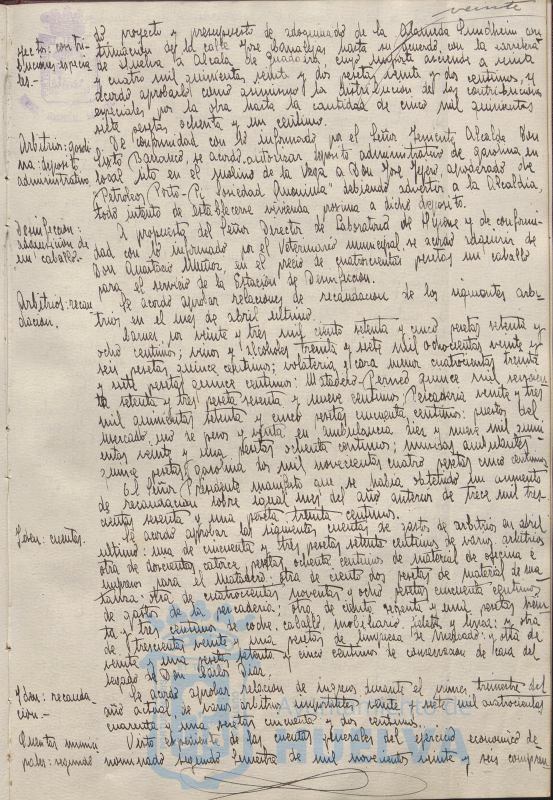 veinte
yecto: contri-
buciones especia-
les.-
do proyecto y presupuesto de adoquinado de la Alameda Sundheim con-
tinuación de la calle José Canalejas hasta su acuerdo con la carretera
de Huelva a Alcalá de Guadaira, cuyo importe asciende a
y cuatro mil quinientas veinte y dos pesetas veinte y dos centimos; y
acordó aprobarlo como asimismo la distribución de las contribuciones
especiales por la obra hasta la cantidad de cinco mil quinientas
siete pesetas ochenta y un centimo.
Arbitrios: gasoli-
na: deposito
administrativo
De conformidad con lo informado por el Señor Teniente Alcalde Don
Sixto Barranco se acordó autorizar deposito administrativo de gasolina en
local sito en el molino de la Vega a Don José apoderado de
"Petroleos Porto-Pi, Sociedad Anonima" debiendo advertir a la Alcaldia,
todo intento de establecerse vivienda proxima a dicho deposito.
Desinfección:
adquisición de
un caballo.-
A propuesta del Señor Director de Laboratorio de Higiene y de conformi-
dad con lo informado por el Veterinario municipal se acordó adquirir de
Don Anastacio Muñoz, en el precio de cuatrocientas pesetas un caballo
para el servicio de la Estación de Desinfección.
Arbitrios: recau-
dacion.
Se acordó aprobar relaciones de recaudacion de los siguientes arbi-
trios en el mes de abril ultimo.
Carnes por veinte y tres mil ciento setenta y cinco pesetas setenta y
ocho centimos; vinos y alcoholes treinta y siete mil ochocientas veinte y
seis pesetas quince centimos; volateria y caza menor cuatrocientas treinta
y siete pesetas quince centimos: Matadero-Permeo quince mil
ta setenta y tres peseta sesenta y nueve centimos; Pescaderia veinte y tres
mil quinientas setenta y cinco pesetas cincuenta centimos: puestos del
mercado, uso de peso y venta en ambulancia diez y nueve mil quini-
entas veinte y una pesetas ochenta centimos; industrias ambulantes
quince pesetas, gasolina dos mil novecientas cuatro pesetas cinco centimos
El Señor Presidente manifestó que se habia obtenido un aumento
de recaudacion sobre igual mes del año anterior de trece mil tres-
cientas sesenta y una peseta treinta centimos.
Idem: cuentas.
Se acordó aprobar las siguientes cuentas de gastos de arbitrios en abril
ultimo: una de cincuenta y tres pesetas setenta centimos de varios arbitrios
otra de doscientas catorce pesetas ochenta centimos de material de oficina e
impresos para el Matadero: otra de ciento dos pesetas de material de ma-
tanza: otra de cuatrocientas noventa y ocho pesetas cincuenta centimos
de gastos de la pescaderia; otra de ciento sesenta y una pesetas
ta y tres centimos de coche, caballo, mobiliario y otra
de trescientas veinte y una pesetas de limpieza de mercado: y otra de
veinte y una pesetas setenta y cinco centimos de conservacion de casa del
legado de Don Carlos Diaz.
Idem: recauda-
ción.-
Se acordó aprobar relación de ingresos durante el primer trimestre del
año actual de varios arbitrios importantes veinte y siete mil cuatrocientas
cuarenta y una pesetas cincuenta y dos centimos.
Cuentas munici-
pales: segundo
Visto expediente de las cuentas generales del ejercicio economico de-
nominado segundo semestre de mil novecientos veinte y seis compren-
Ayuntamiento de
HUELVA